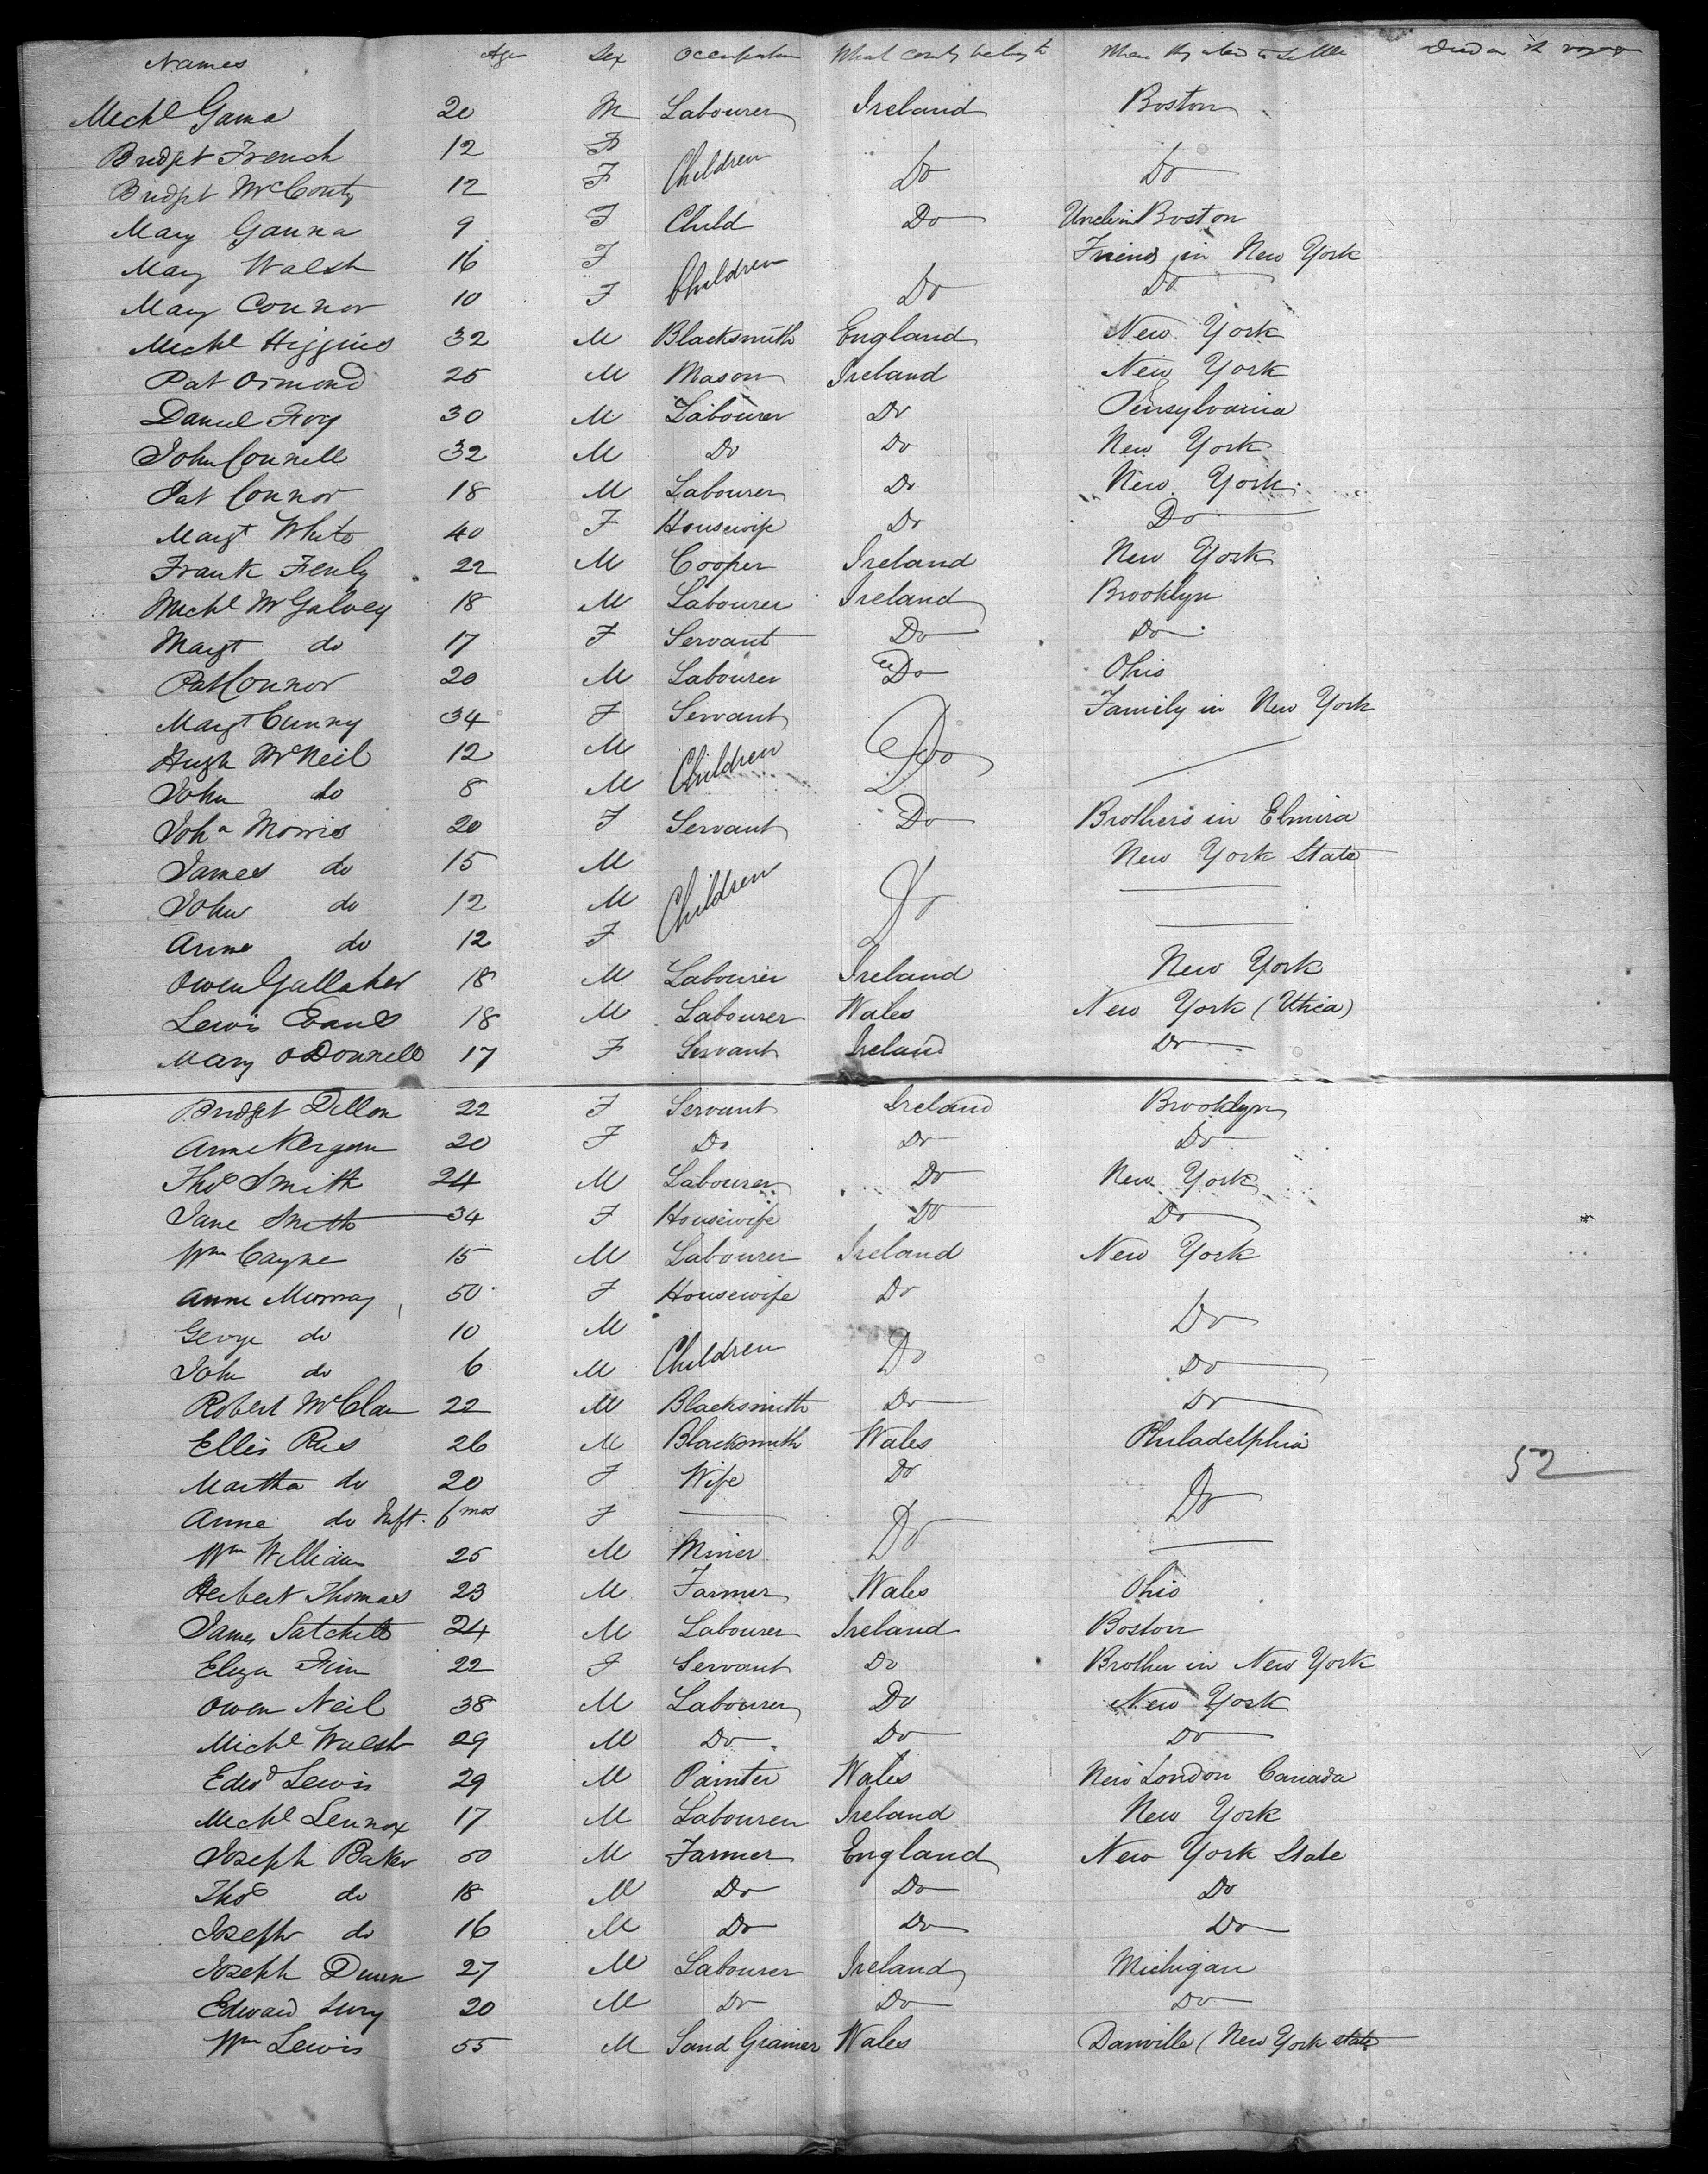 Names Age Sex Occupation What county belong to Where they intend to settle Died on the voyage
Michl Gama 20 M Labourer Ireland Boston
Bridget French 12 F Children Do Do
Bridget McConty 12 F
Mary Ganna 9 F Child Do Uncle in Boston
Mary Walsh 16 F Children Do Friend in New York
Mary Connor 10 F Do
Michl Higgins 32 M Blacksmith England New York
Pat Ormond 25 M Mason Ireland New York
Daniel Foy 30 M Labourer Do Pensylvania
John Connell 32 M Do Do New York
Pat Connor 18 M Labourer Do New York
Margt White 40 F Housewife Do Do
Frank Fenly 22 M Cooper Ireland New York
Michl McGalvey 18 M Labourer Ireland Brooklyn
Margt do 17 F Servant Do Do
Pat Connor 20 M Labourer Do Ohio
Margt Cunny 34 F Servant Do Family in New York
Hugh McNeil 12 M Children
John do 8 M
Joha Morris 20 F Servant Do Brothers in Elmira
James do 15 M Children Do New York State
John do 12 M
Anne do 12 F
Owen Gallaher 18 M Labourer Ireland New York
Lewis Evans 18 M Labourer Wales New York (Utica)
Mary O Donnell 17 F Servant Ireland Do
Bridget Dillon 22 F Servant Ireland Brooklyn
Anne 20 F Do Do Do
Thos Smith 24 M Labourer Do New York
Jane Smith 34 F Housewife Do Do
Wm Cayne 15 M Labourer Ireland New York
Anne Murray 50 F Housewife Do Do
George do 10 M Children Do
John do 6 M Do
Robert McClan 22 M Blacksmith Do Do
Ellis Rees 26 M Blacksmith Wales Philadelphia
Martha do 20 F Wife Do Do 52
Anne do Inft. 6 mos F Do
Wm Williams 25 M Miner
Herbert Thomas 23 M Farmer Wales Ohio
James Satchell 24 M Labourer Ireland Boston
Eliza Finn 22 F Servant Do Brother in New York
Owen Neil 38 M Labourer Do New York
Michl Walsh 29 M Do Do Do
Edwd Lewis 29 M Painter Wales New London Canada
Michl Lennox 17 M Labourer Ireland New York
Joseph Baker 50 M Farmer England New York State
Thos do 18 M Do Do Do
Joseph do 16 M Do Do Do
Joseph Dunn 27 M Labourer Ireland Michigan
Edward 20 M Do Do Do
Wm Lewis 55 M Sand Grainer Wales Danville (New York state